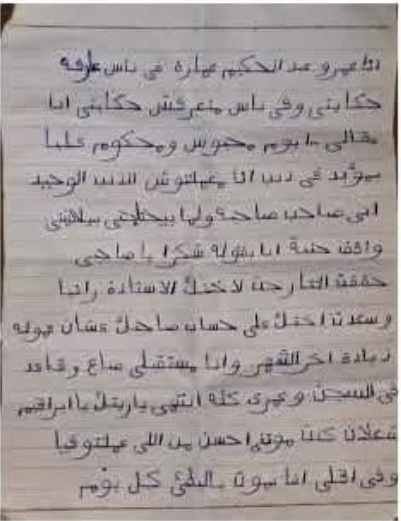 انا عمرو عبد الحكيم عمارة في ناس عارفه
حكايتي وفي ناس متعرفش حكايتي انا
بقالي ١٠ يوم محبوس ومحكوم عليا
بمؤبد في ذنب انا معملتوش الذنب الوحيد
اني صاحب صاحبه ولما بيحتاجني بيلاقيني
واقف جنبة انا بقوله شكرا يا صاحبي
حققت التار حت لاختك الاستاذة رانيا
وسعدت اختك على حساب صاحبك عشان
زيادة اخر الشهر وانا مستقبلي ضاع وقاعد
في السجن وعمري كله انتهى ياريتك يا ابراهيم
شعلان كنت موتني احسن من اللي عملتو فيا
وفي اهلي انا بموت بالبطئ كل يوم